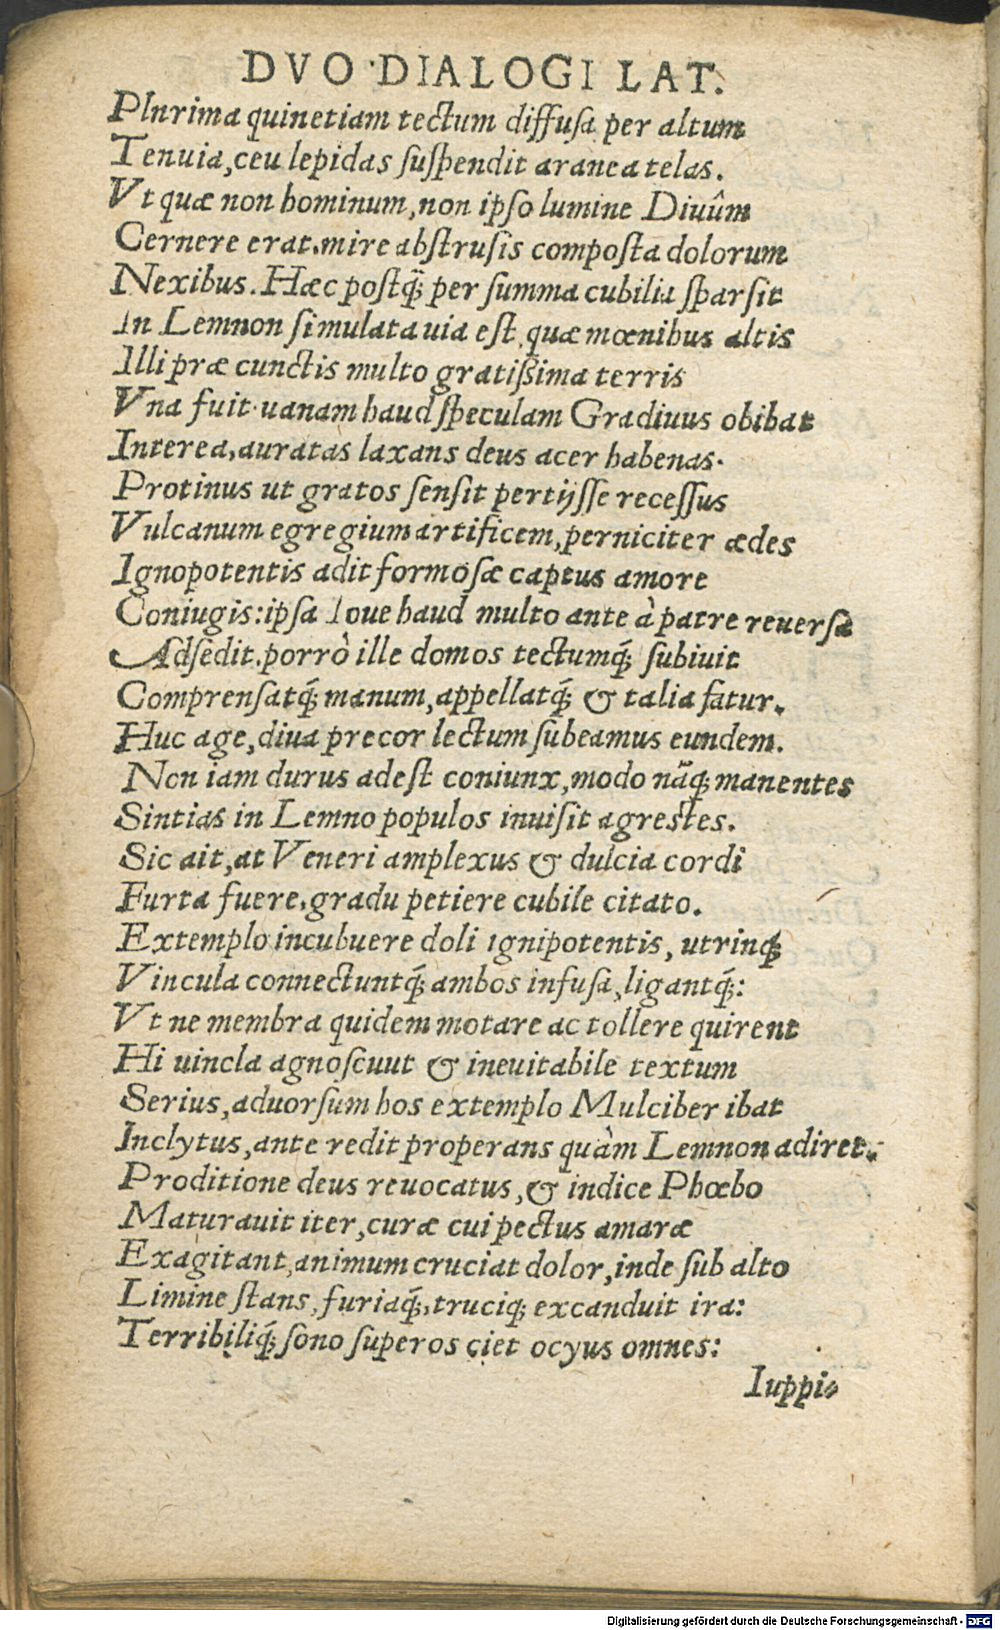 DVO DIALOGI LAT.
Plnrima quinetiam tectum diffusa per altum
Tenuia, ceu lepidas suspendit aranea telas.
Vt quæ non hominum, non ipso lumine Diuûm
Cernere erat, mire abstrusis composta dolorum
Nexibus. Hæc postq̃; per summa cubilia sparsit
In Lemnon simulata uia est, quæ mœnibus altis
Illi præ cunctis multo gratißima terris
Vna fuit. uanam haud speculam Gradiuus obibat
Interea, auratas laxans deus acer habenas.
Protinus ut gratos sensit pertijsse recessus
Vulcanum egregium artificem, perniciter ædes
Ignopotentis adit formosæ captus amore
Coniugis: ipsa Ioue haud multo ante à patre reuersa
Adsedit. porrò ille domos tectumq́; subiuit
Comprensatq́; manum, appellatq́; & talia fatur.
Huc age, diua precor lectum subeamus eundem.
Non iam durus adest coniunx, modo nãq; manentes
Sintias in Lemno populos inuisit agrestes.
Sic ait, at Veneri amplexus & dulcia cordi
Furta fuere, gradu petiere cubile citato.
Extemplo incubuere doli ignipotentis, utrinq;
Vincula connectuntq́; ambos infusa, ligantq́;:
Vt ne membra quidem motare ac tollere quirent
Hi uincla agnoscuut & ineuitabile textum
Serius, aduorsum hos extemplo Mulciber ibat
Inclytus, ante redit properans quàm Lemnon adiret.
Proditione deus reuocatus, & indice Phœbo
Maturauit iter, curæ cui pectus amaræ
Exagitant, animum cruciat dolor, inde sub alto
Limine stans, furiaq́;, truciq; excanduit ira:
Terribiliq́; sono superos ciet ocyus omnes:
Iuppi-
Digitalisierung gefördert durch die Deutsche Forschungsgemeinschaft - DFG